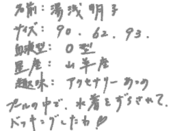 名前：湯浅 明子
サイズ：90．62．93．
血液型：O型
星座：山羊座
趣味：アクセサリー
プールの中で、水着をずらされて、
ドッキングしたわ